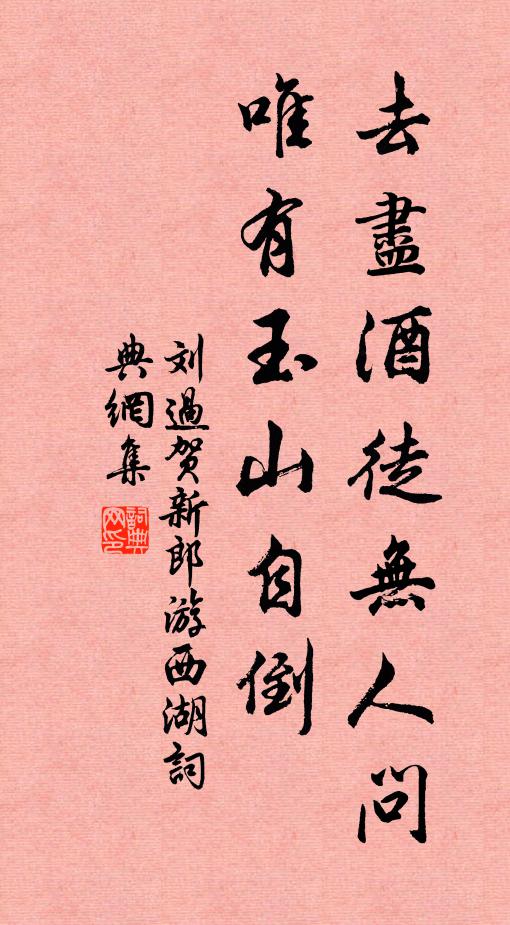 去盡酒徒無人問
唯有玉山自倒
刘過贺新郎游西湖詞
典網集
詞典网印